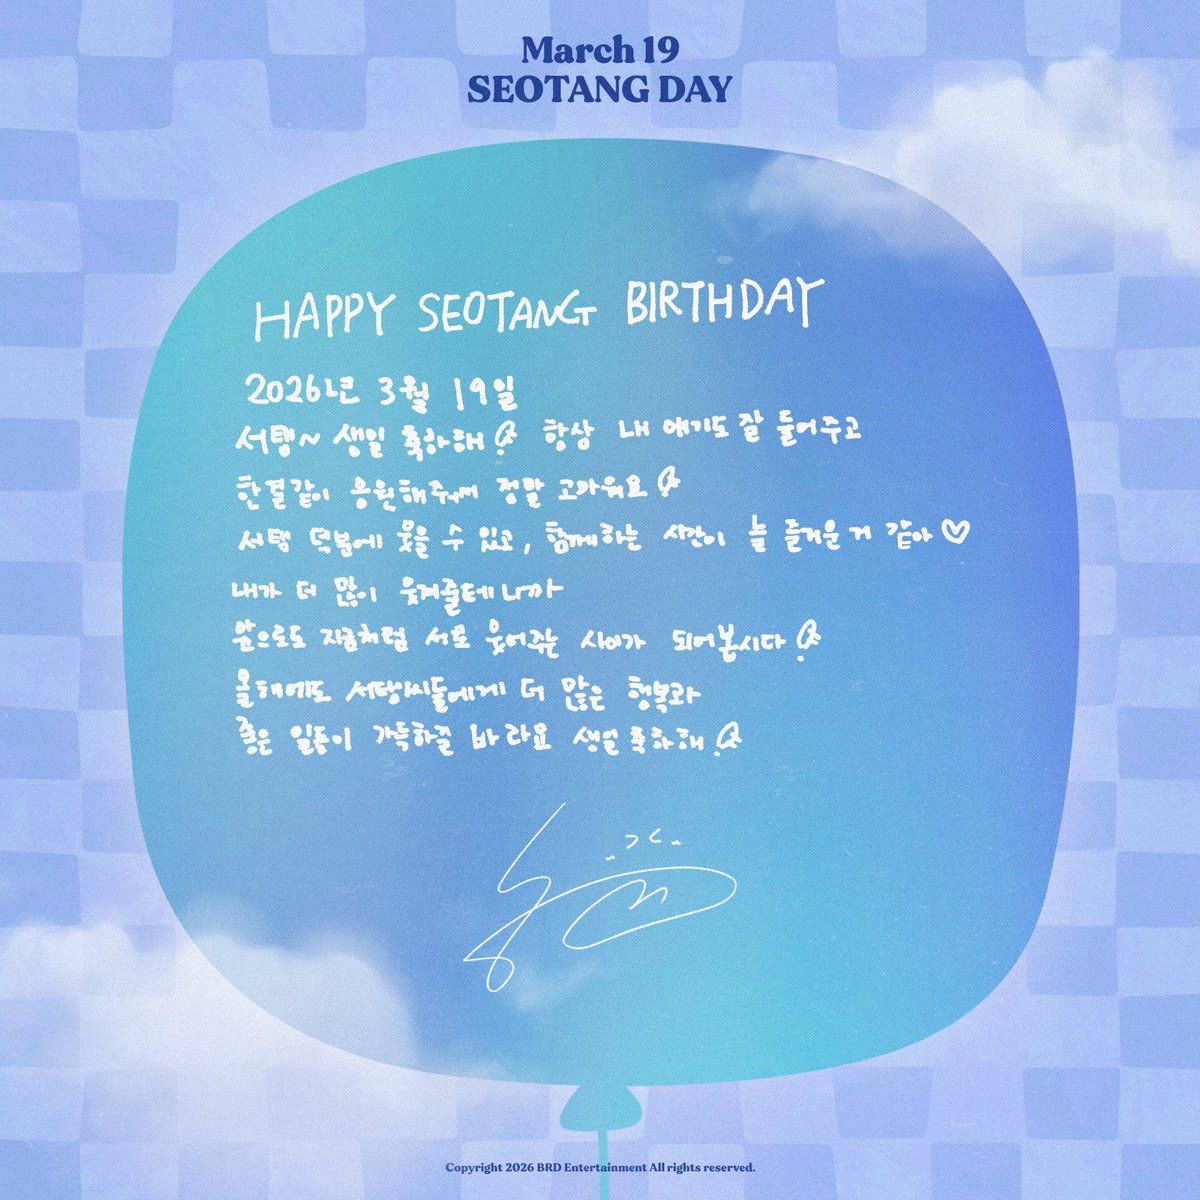 March 19
SEOTANG DAY
HAPPY SEOTANG BIRTHDAY
2026년 3월 19일
서탱~ 생일 축하해 항상 내 얘기도 잘 들어주고
한결같이 응원해줘서 정말 고마워요
서탱 덕분에 웃을 수 있고, 함께하는 시간이 늘 즐거운 거 같아♡
내가 더 많이 웃겨줄테니까
앞으로도 지금처럼 서로 웃어주는 사이가 되어봅시다
올해에도 서탱이들에게 더 많은 행복과
좋은 일들이 가득하길 바라요 생일 축하해
Copyright 2026 BRD Entertainment All rights reserved.